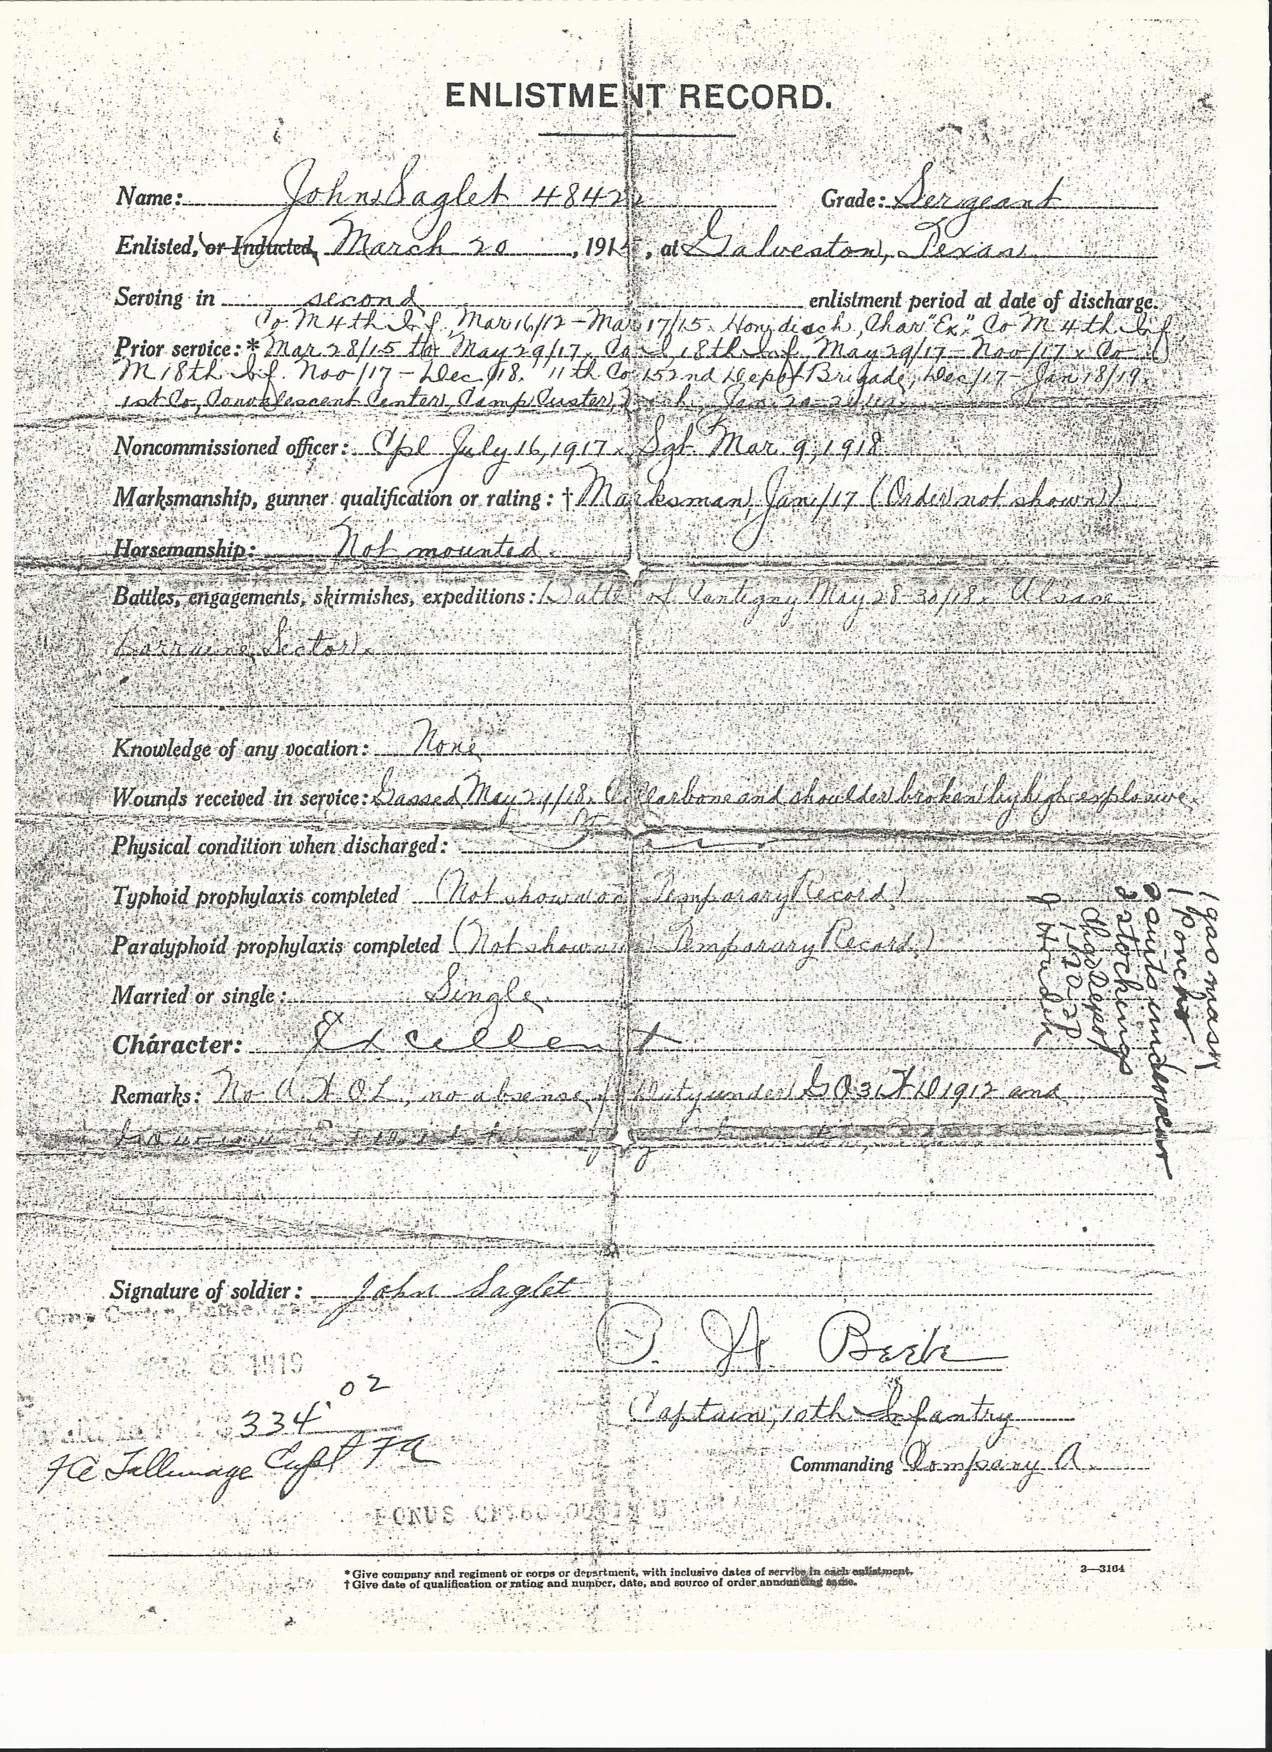 ENLISTMENT RECORD.
Name: John Saglet 4842 Grade: Sergeant
Enlisted, or Inducted, March 20, 191, at Galveston, Texas.
Serving in second enlistment period at date of discharge.
Co M 4th Inf. Mar 16/12 - Mar 17/15. Hon. disch, Char "Ex." Co M 4th Inf
Prior service: * Mar 28/15 to May 29/17. Co 18th Inf. May 29/17 - Nov/17. Co
M 18th Inf. Nov/17 - Dec /18. 11th Co 152nd Depot Brigade, Dec/17 - Jan 18/19.
1st Co, Convalescent Center, Camp Custer, Jan.
Noncommissioned officer: Cpl July 16, 1917. Sgt Mar 9, 1918
Marksmanship, gunner qualification or rating: † Marksman, Jan/17 (Order not shown)
Horsemanship: Not mounted.
Battles, engagements, skirmishes, expeditions: Battle of Cantigny May 28-30/18. Alsace
Lorraine Sector.
Knowledge of any vocation: None
Wounds received in service: Gassed May /18. Collarbone and shoulder broken by high explosive.
Physical condition when discharged:
Typhoid prophylaxis completed (Not shown on Temporary Record.)
Paratyphoid prophylaxis completed (Not shown on Temporary Record.)
Married or single: Single.
Character: Excellent
Remarks: No A.W.O.L., no absense fr Duty under G O 31 W D 1912 and
Signature of soldier: John Saglet
1919
P. H. Beebe
334.02
Captain, 10th Infantry
F A Tallmage Capt F A
Commanding Company A.
BONUS
* Give company and regiment or corps or department, with inclusive dates of service in each enlistment.
† Give date of qualification or rating and number, date, and source of order announcing same.
3—3164
1 gas mask
1 Poncho
2 suits underwear
2 stockings